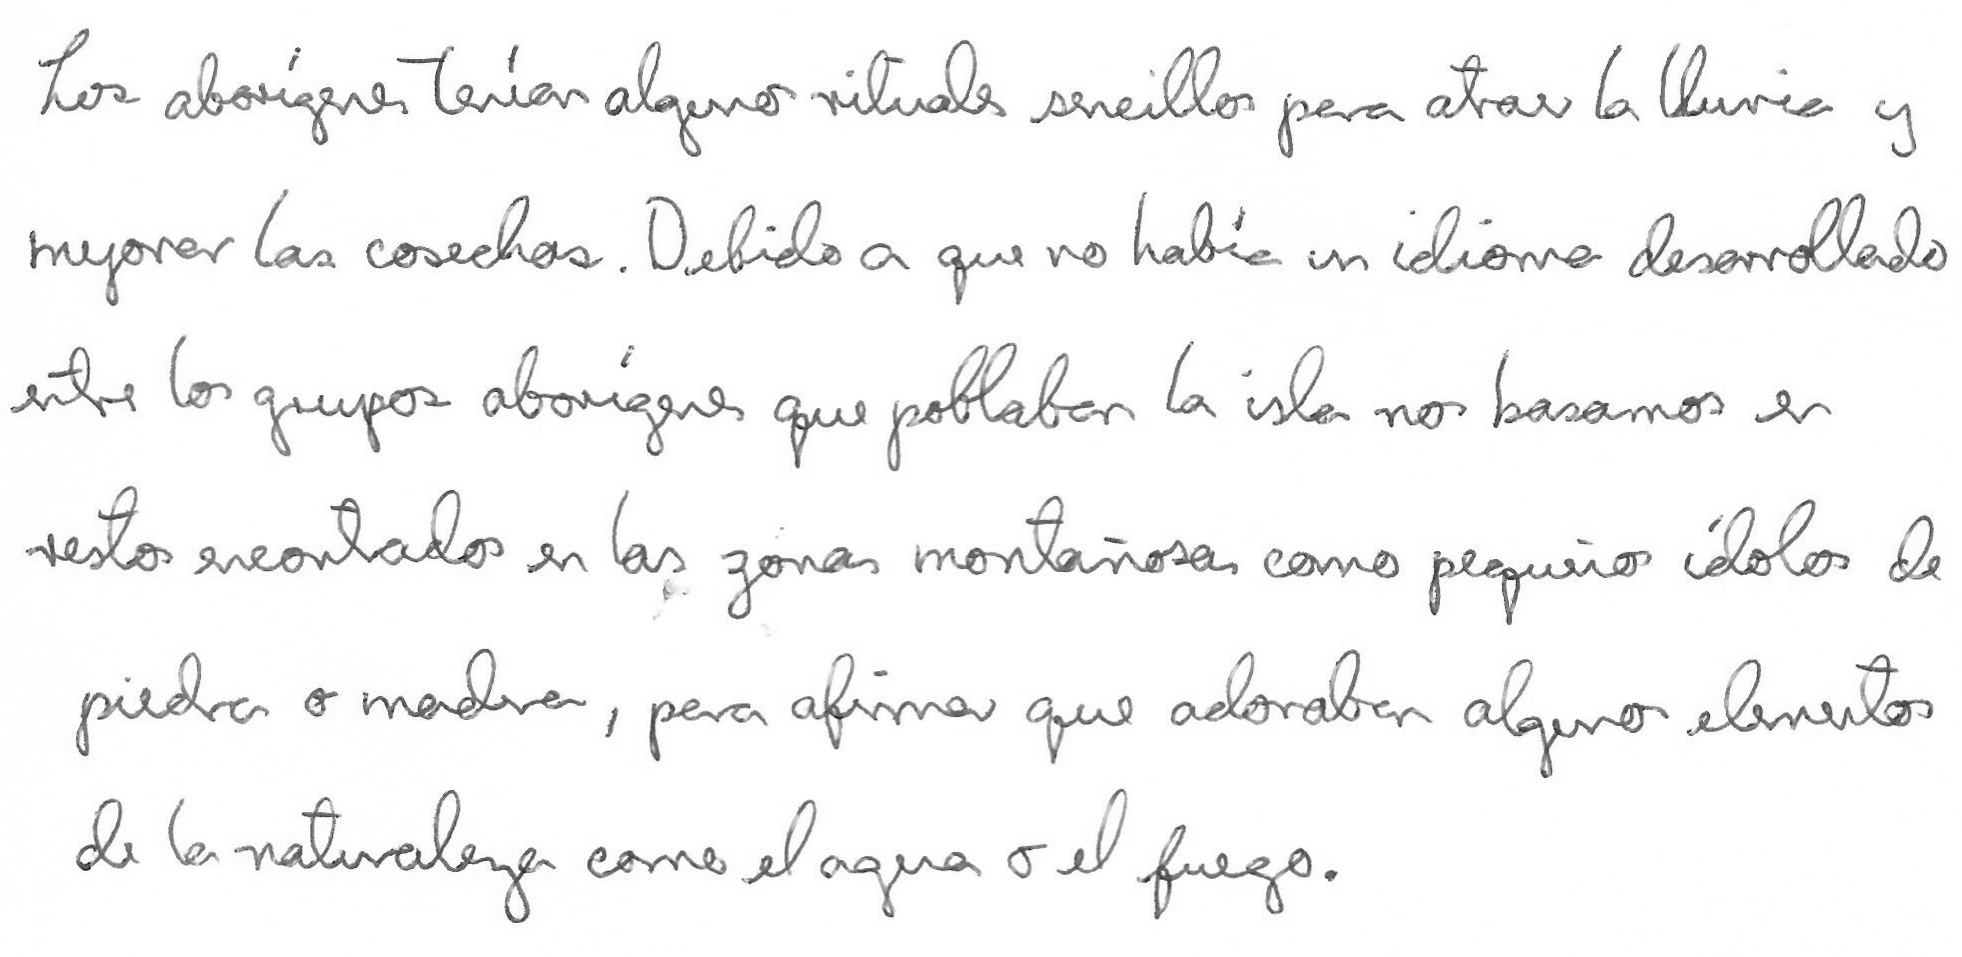 Los aborígenes tenían algunos rituales sencillos para atraer la lluvia y
mejorar las cosechas. Debido a que no había un idioma desarrollado
entre los grupos aborígenes que poblaban la isla nos basamos en
restos encontrados en las zonas montañosas como pequeños ídolos de
piedra o madera, para afirmar que adoraban algunos elementos
de la naturaleza como el agua o el fuego.